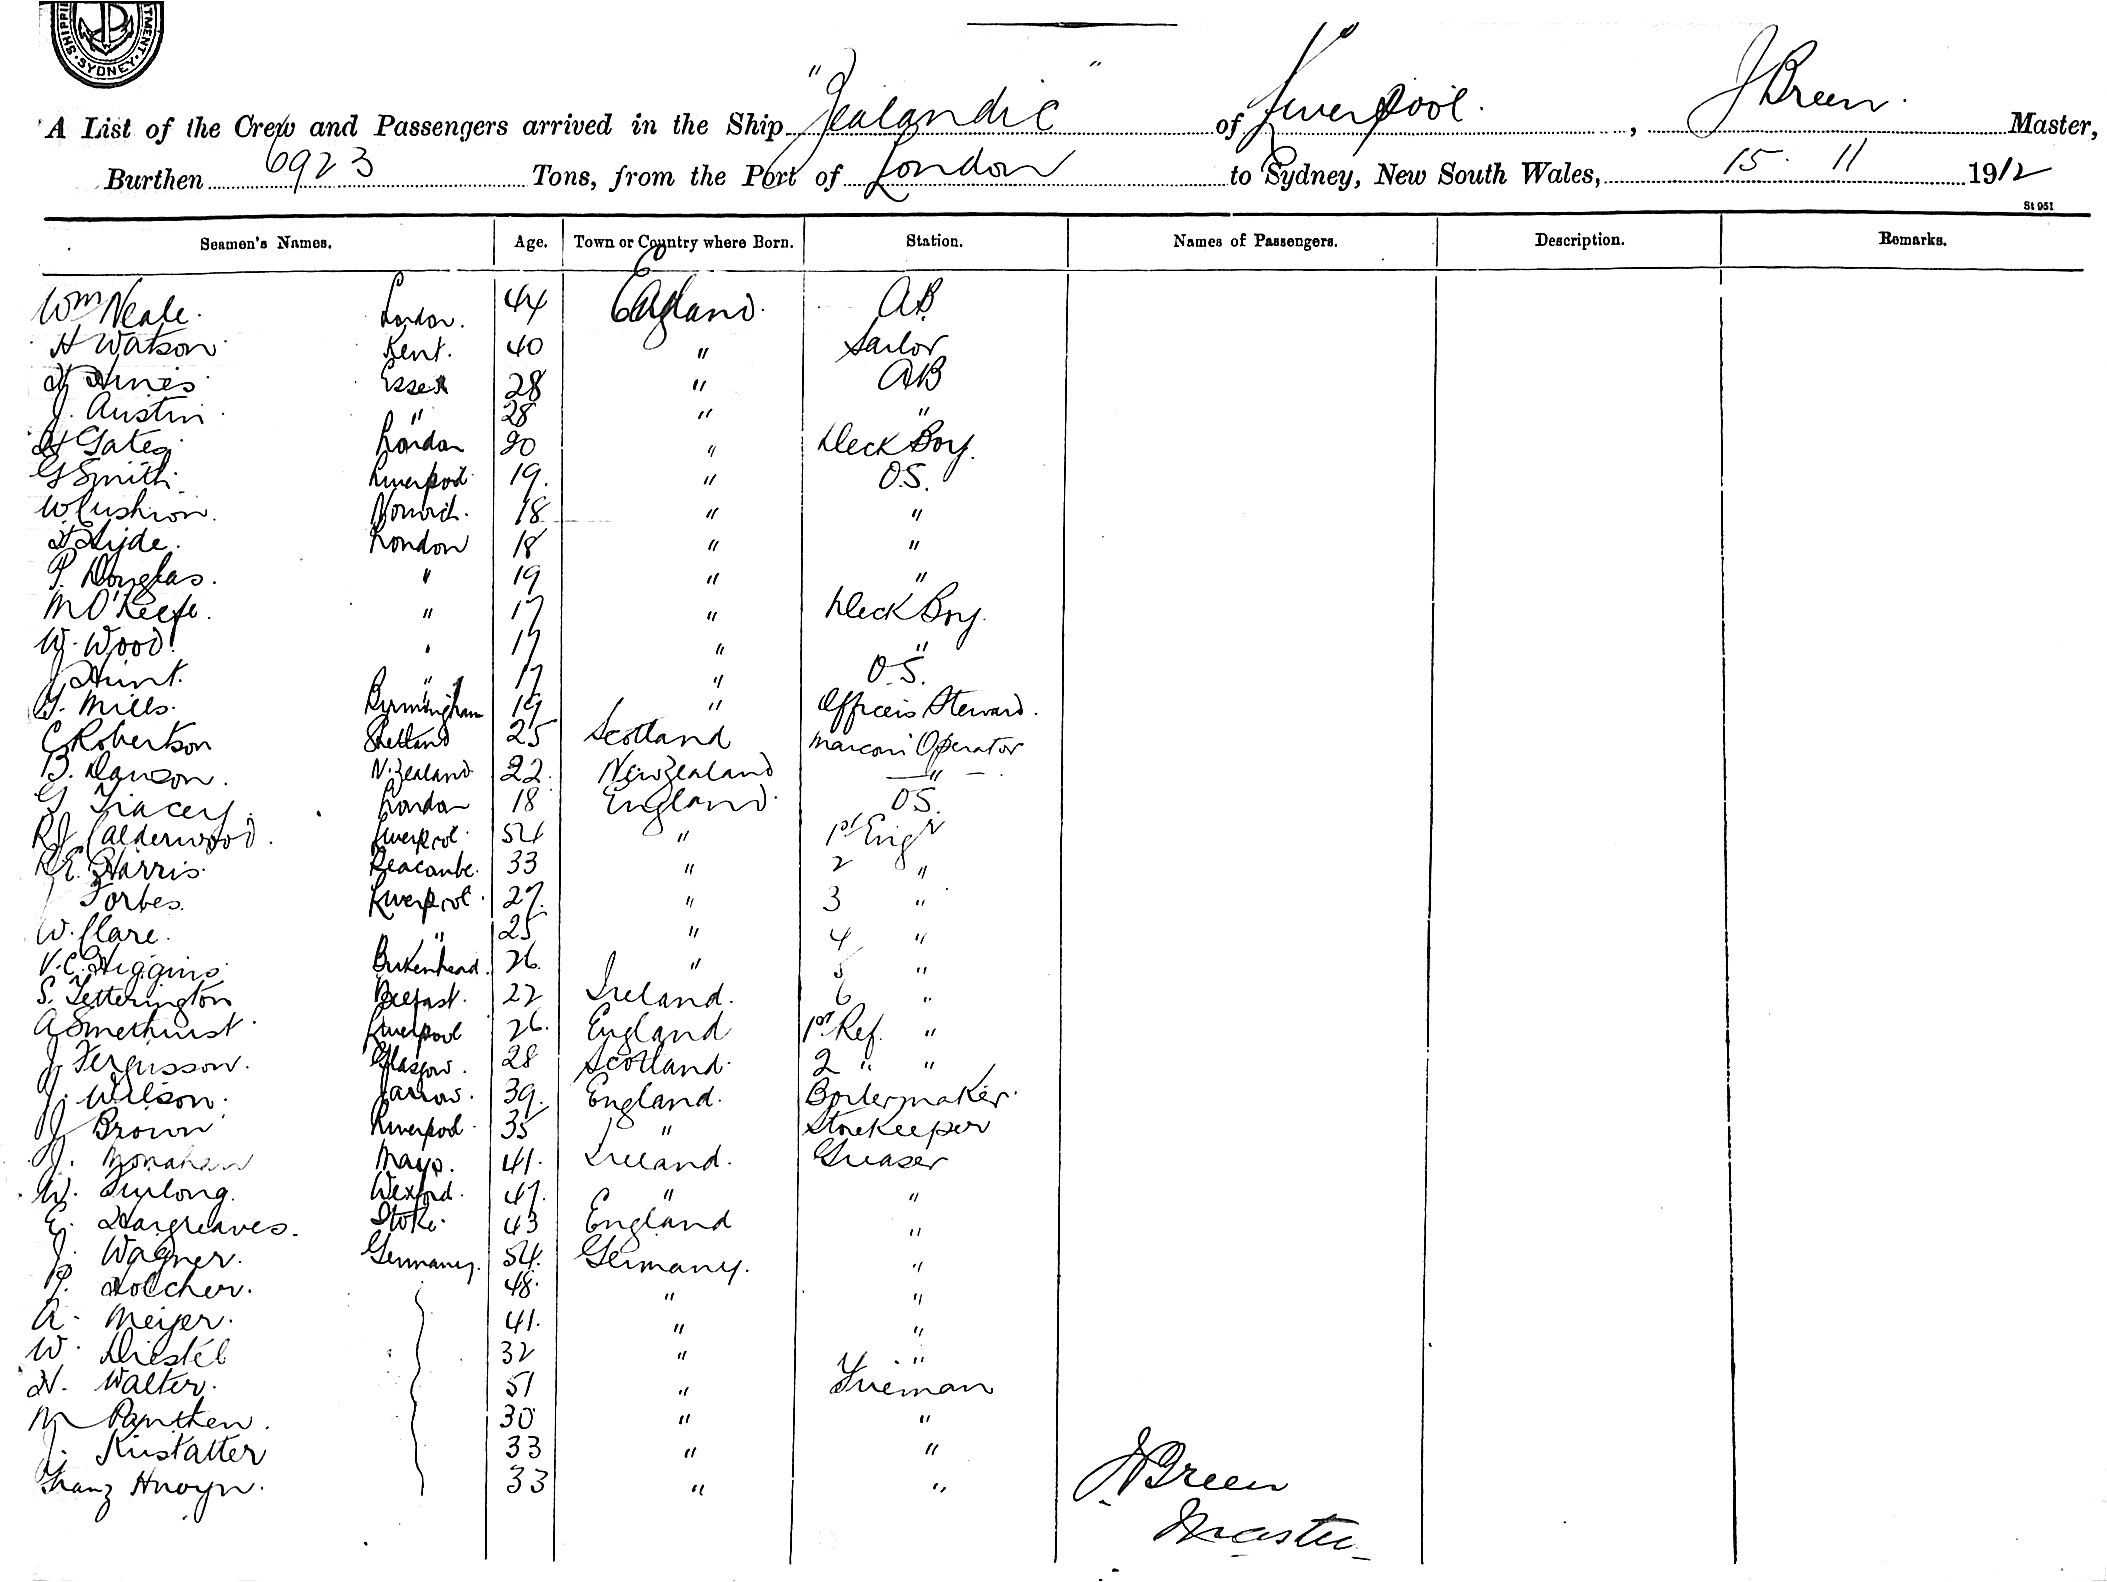 SHIPPI TMENT · SYDNEY ·
A List of the Crew and Passengers arrived in the Ship "Zealandic" of Liverpool. , J Breen. Master,
Burthen 6923 Tons, from the Port of London to Sydney, New South Wales, 15. 11 1912
St 951
Seamen's Names. Age. Town or Country where Born. Station. Names of Passengers. Description. Remarks.
Wm Neale. London. 44 England. AB
H Watson Kent. 40 " Sailor
Hines Essex 28 " AB
J. Austin " 28 " "
H Gates London 20 " Deck Boy.
G Smith. Liverpool 19. " O.S.
W Cushion. Norwich. 18 " "
H Hyde. London 18 " "
P. Douglas. " 19 " "
M O'Keefe. " 17 " Deck Boy.
W. Wood " 17 " "
J Hunt. " 17 " O.S.
G. Mills. Birmingham 19 " Officers Steward.
C Robertson Shetland 25 Scotland Marconi Operator
B. Dawson. N. Zealand 22. New Zealand "
G Tracey. London 18 England. OS.
RJ Calderwood. Liverpool 54 " 1st Engr
R.E. Harris. Seacombe. 33 " 2 "
J Forbes. Liverpool. 27. " 3 "
W. Clare. " 25 " 4 "
V.C. Higgins Birkenhead. 26. " 5 "
S. Tetterington Belfast. 22 Ireland. 6 "
A Smethurst Liverpool 26. England 1st Ref. "
J Fergusson. Glasgow. 28 Scotland. 2 " "
J. Wilson. Jarrow. 39. England. Boilermaker.
J Brown Liverpool 35 " Storekeeper
J. Monahan Mayo. 41. Ireland. Greaser
W. Furlong. Wexford. 47. " "
E. Hargreaves. Stoke. 43 England "
J. Wagner. Germany. 54. Germany. "
P. Holcher. 48. " "
A. Meijer. 41. " "
W. Diestel 32 " "
H. Walter. 51 " Fireman
M Panthen. 30 " "
J. Kustatter 33 " "
Franz 33 " "
J Breen
Master